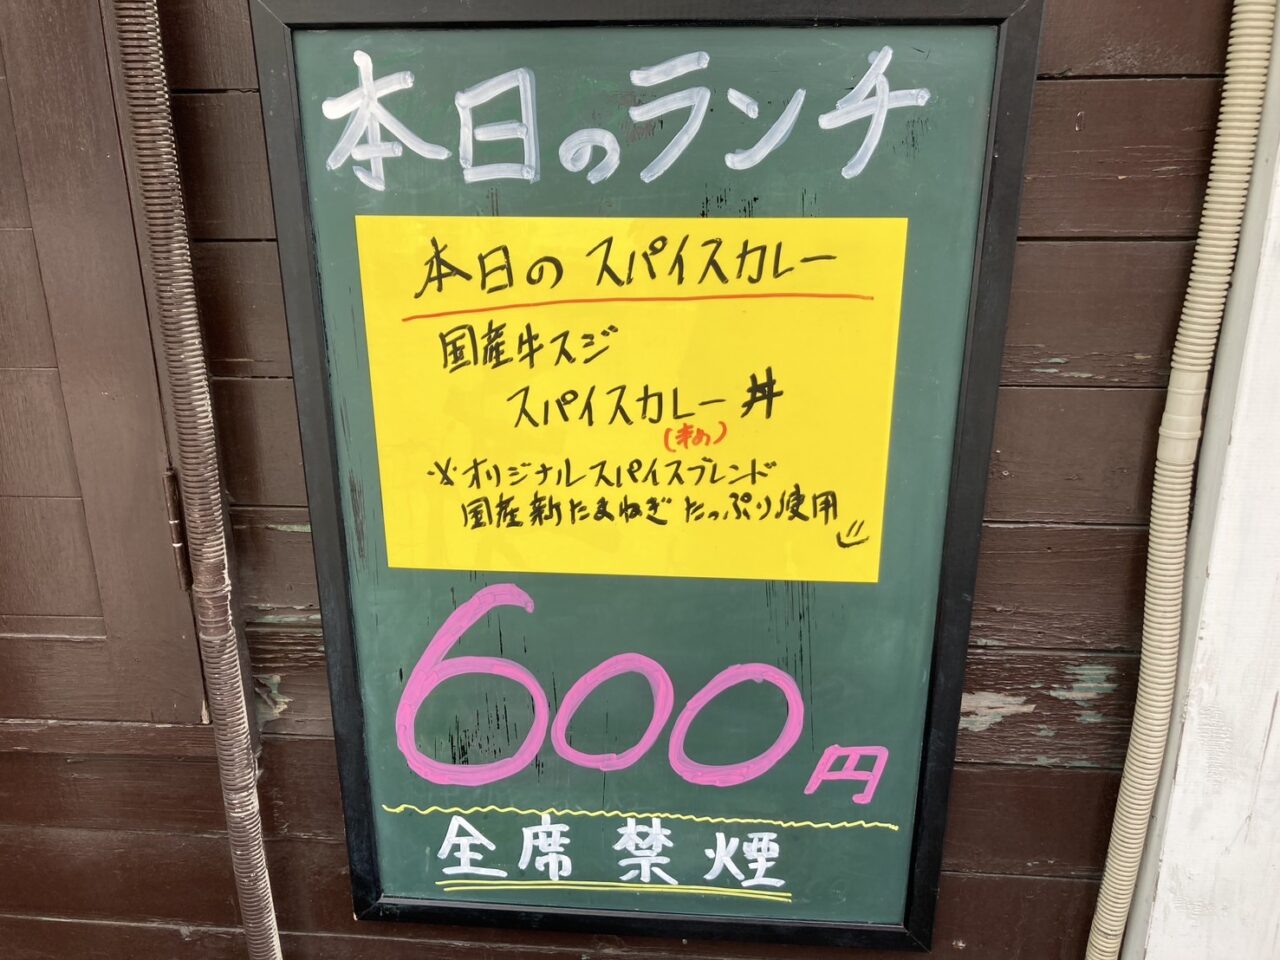 本日のランチ
本日のスパイスカレー
国産牛スジ
スパイスカレー丼
(辛め)
※オリジナルスパイスブレンド
国産新たまねぎたっぷり使用
600円
全席禁煙